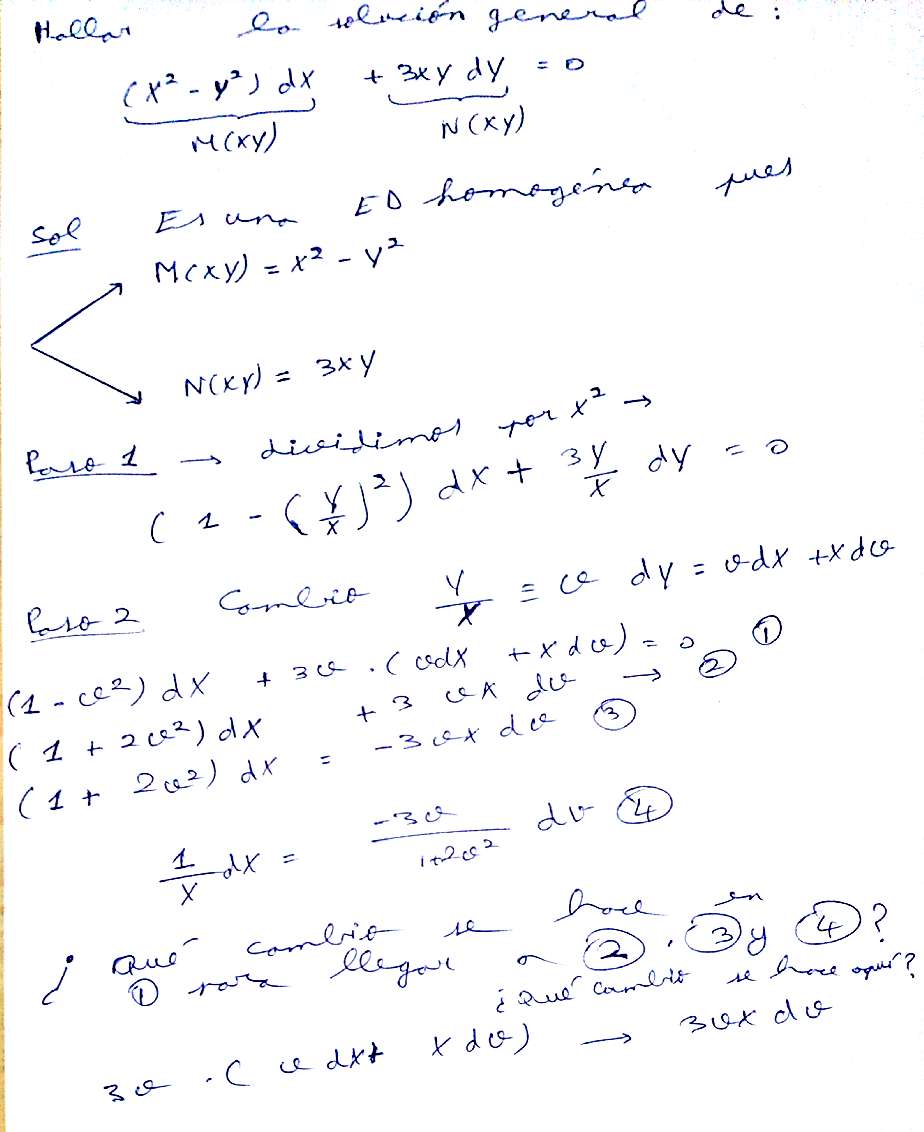 Hallar la solución general de:
(x² - y²) dx + 3xy dy = 0
M(xy) N(xy)
Sol Es una ED homogénea pues
M(xy) = x² - y²
N(xy) = 3xy
Paso 1 → dividimos por x² →
(1 - (y/x)²) dx + 3y/x dy = 0
Paso 2 Cambio y/x = v dy = vdx + xdv
(1 - v²) dx + 3v · (vdx + xdv) = 0 ①
(1 + 2v²) dx + 3vx dv → ②
(1 + 2v²) dx = -3vx dv ③
1/x dx = -3v/1+2v² dv ④
¿Qué cambio se hace en
① para llegar a ②, ③ y ④?
¿Qué cambio se hace aquí?
3v · (v dx + x dv) → 3vx dv